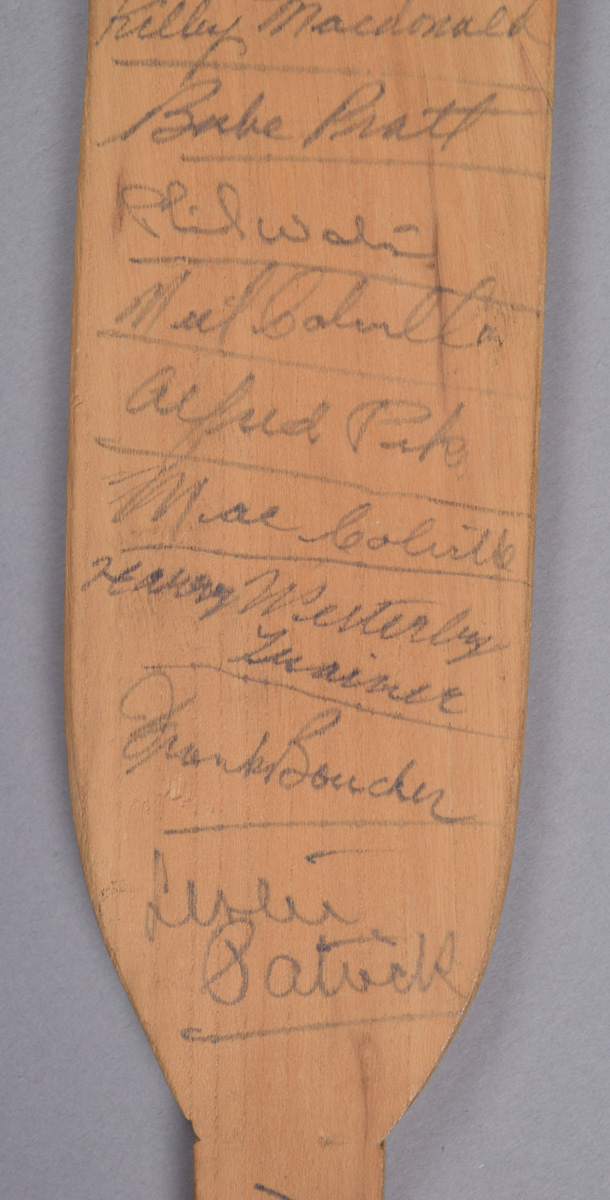 Kilby Macdonald
Babe Pratt
Phil Watson
Neil Colville
Alfred Pike
Mac Colville
Harry Westerby
Trainer
Frank Boucher
Lester
Patrick